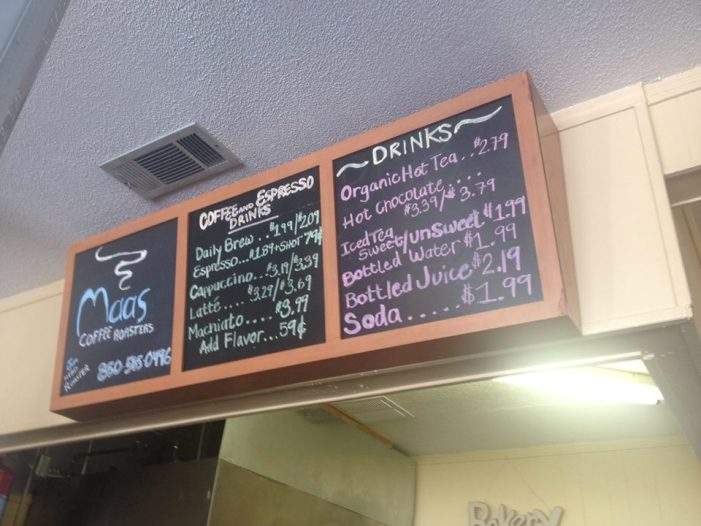 Maas
COFFEE ROASTERS
ROASTER
COFFEE AND ESPRESSO
DRINKS
Daily Brew .. $1.99/2.09
Espresso... $1.89 + SHOT 79¢
Cappuccino... $3.19/$3.39
Latté.... $3.29/$3.69
Machiato.... $3.99
Add Flavor...59¢
~DRINKS~
Organic Hot Tea.. $2.79
Hot Chocolate....
$3.39/$3.79
Iced Tea
Sweet/unSweet $1.99
Bottled Water $1.99
Bottled Juice $2.19
Soda...... $1.99
Bakery